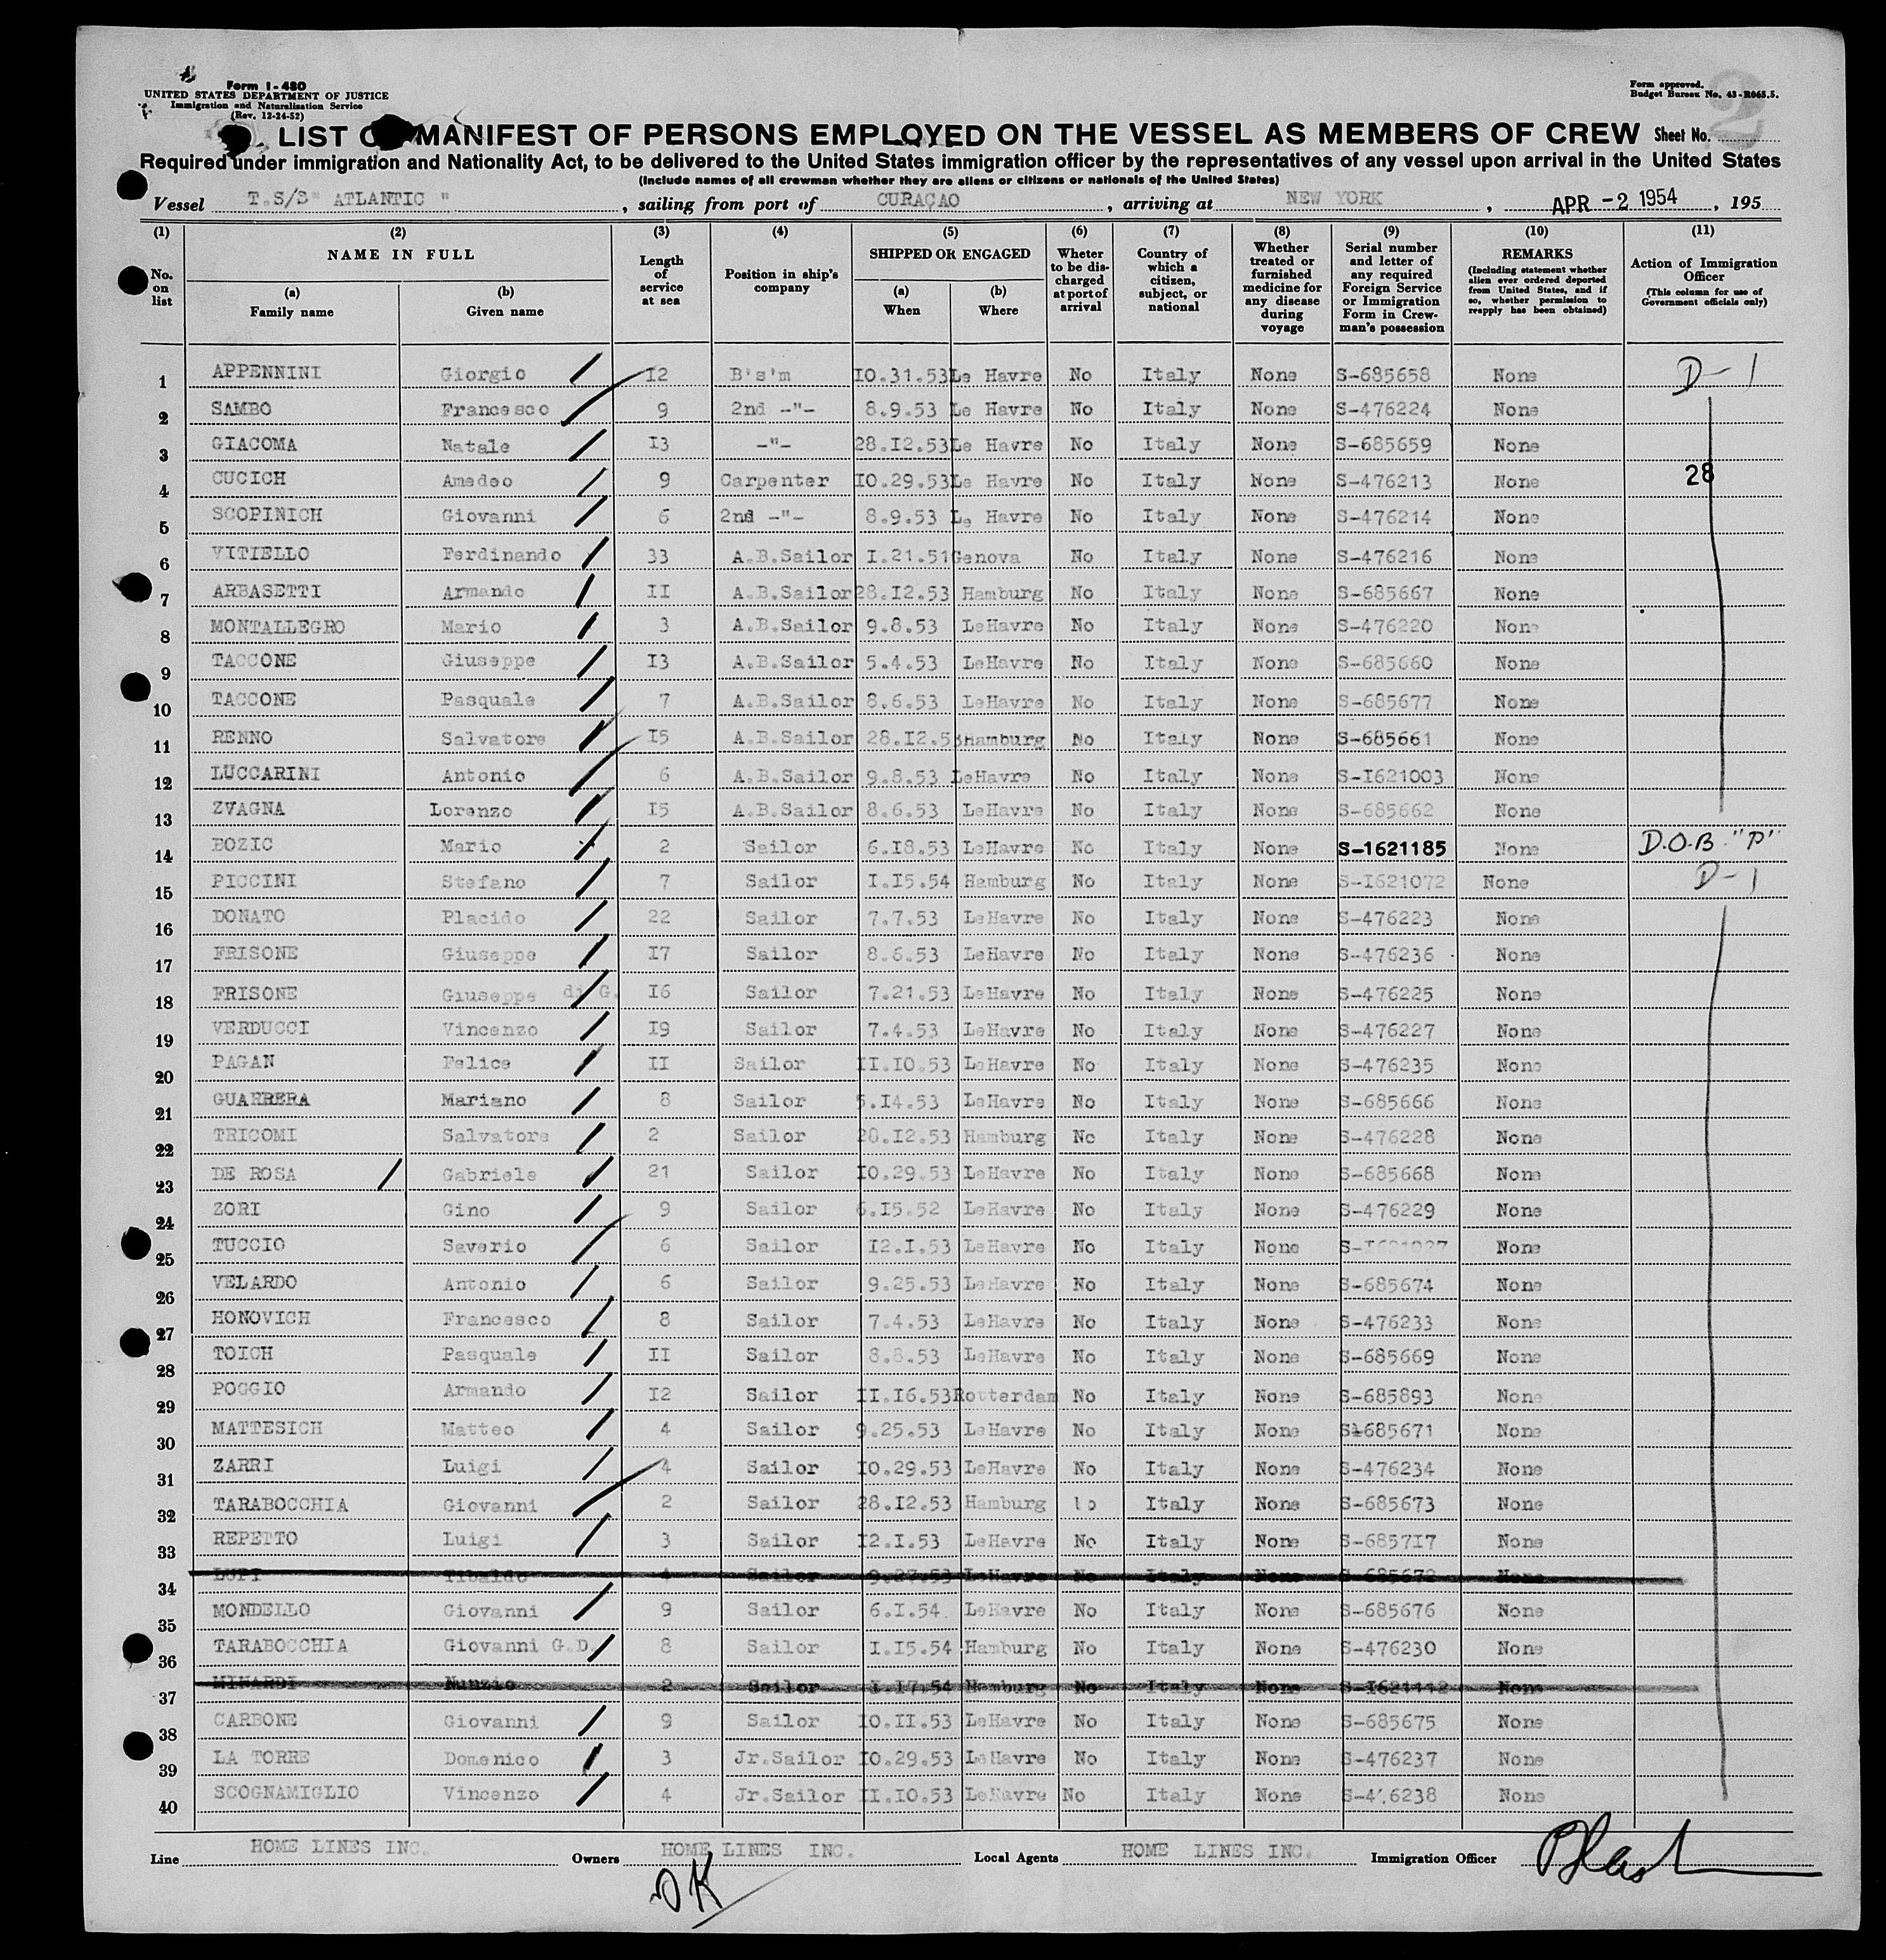 Form I-480
UNITED STATES DEPARTMENT OF JUSTICE
Immigration and Naturalization Service
(Rev. 12-24-52)
Form approved.
Budget Bureau No. 43-R065.5.
LIST OR MANIFEST OF PERSONS EMPLOYED ON THE VESSEL AS MEMBERS OF CREW Sheet No. 2
Required under immigration and Nationality Act, to be delivered to the United States immigration officer by the representatives of any vessel upon arrival in the United States
(Include names of all crewman whether they are aliens or citizens or nationals of the United States)
Vessel T.S/S" ATLANTIC ", sailing from port of CURAÇAO, arriving at NEW YORK, APR -2 1954, 195
(1) (2) (3) (4) (5) (6) (7) (8) (9) (10) (11)
No. on list
NAME IN FULL
(a) Family name
(b) Given name
Length of service at sea
Position in ship's company
SHIPPED OR ENGAGED
(a) When
(b) Where
Wheter to be discharged at port of arrival
Country of which a citizen, subject, or national
Whether treated or furnished medicine for any disease during voyage
Serial number and letter of any required Foreign Service or Immigration Form in Crewman's possession
REMARKS
(Including statement whether alien ever ordered deported from United States, and if so, whether permission to reapply has been obtained)
Action of Immigration Officer
(This column for use of Government officials only)
1 APPENNINI Giorgio I2 B's'm I0.31.53 Le Havre No Italy None S-685658 None D-1
2 SAMBO Francesco 9 2nd -"- 8.9.53 Le Havre No Italy None S-476224 None
3 GIACOMA Natale I3 -"- 28.I2.53 Le Havre No Italy None S-685659 None
4 CUCICH Amedeo 9 Carpenter I0.29.53 Le Havre No Italy None S-476213 None 28
5 SCOPINICH Giovanni 6 2nd -"- 8.9.53 Le Havre No Italy None S-476214 None
6 VITIELLO Ferdinando 33 A.B.Sailor I.21.51 Genova No Italy None S-476216 None
7 ARBASETTI Armando II A.B.Sailor 28.I2.53 Hamburg No Italy None S-685667 None
8 MONTALLEGRO Mario 3 A.B.Sailor 9.8.53 LeHavre No Italy None S-476220 None
9 TACCONE Giuseppe I3 A.B.Sailor 5.4.53 LeHavre No Italy None S-685660 None
10 TACCONE Pasquale 7 A.B.Sailor 8.6.53 LeHavre No Italy None S-685677 None
11 RENNO Salvatore I5 A.B.Sailor 28.I2.53 Hamburg No Italy None S-685661 None
12 LUCCARINI Antonio 6 A.B.Sailor 9.8.53 LeHavre No Italy None S-I621003 None
13 ZVAGNA Lorenzo I5 A.B.Sailor 8.6.53 LeHavre No Italy None S-685662 None
14 BOZIC Mario 2 Sailor 6.I8.53 LeHavre No Italy None S-1621185 None D.O.B. "P"
15 PICCINI Stefano 7 Sailor I.I5.54 Hamburg No Italy None S-I621072 None D-1
16 DONATO Placido 22 Sailor 7.7.53 LeHavre No Italy None S-476223 None
17 FRISONE Giuseppe I7 Sailor 8.6.53 LeHavre No Italy None S-476236 None
18 FRISONE Giuseppe di G. I6 Sailor 7.21.53 LeHavre No Italy None S-476225 None
19 VERDUCCI Vincenzo I9 Sailor 7.4.53 LeHavre No Italy None S-476227 None
20 PAGAN Felice II Sailor II.I0.53 LeHavre No Italy None S-476235 None
21 GUARRERA Mariano 8 Sailor 5.I4.53 LeHavre No Italy None S-685666 None
22 TRICOMI Salvatore 2 Sailor 28.I2.53 Hamburg No Italy None S-476228 None
23 DE ROSA Gabriele 21 Sailor I0.29.53 LeHavre No Italy None S-685668 None
24 ZORI Gino 9 Sailor 6.I5.52 LeHavre No Italy None S-476229 None
25 TUCCIO Saverio 6 Sailor I2.I.53 LeHavre No Italy None None
26 VELARDO Antonio 6 Sailor 9.25.53 LeHavre No Italy None S-685674 None
27 HONOVICH Francesco 8 Sailor 7.4.53 LeHavre No Italy None S-476233 None
28 TOICH Pasquale II Sailor 8.8.53 LeHavre No Italy None S-685669 None
29 POGGIO Armando I2 Sailor II.I6.53 Rotterdam No Italy None S-685893 None
30 MATTESICH Matteo 4 Sailor 9.25.53 LeHavre No Italy None S-685671 None
31 ZARRI Luigi 4 Sailor I0.29.53 LeHavre No Italy None S-476234 None
32 TARABOCCHIA Giovanni 2 Sailor 28.I2.53 Hamburg No Italy None S-685673 None
33 REPETTO Luigi 3 Sailor I2.I.53 LeHavre No Italy None S-685717 None
34 LUPI Tibaldo 4 Sailor 9.27.53 LeHavre No Italy None S-685672 None
35 MONDELLO Giovanni 9 Sailor 6.I.54 LeHavre No Italy None S-685676 None
36 TARABOCCHIA Giovanni G.D. 8 Sailor I.I5.54 Hamburg No Italy None S-476230 None
37 MINARDI Nunzio 2 Sailor I.I7.54 Hamburg No Italy None S-I621112 None
38 CARBONE Giovanni 9 Sailor I0.II.53 LeHavre No Italy None S-685675 None
39 LA TORRE Domenico 3 Jr.Sailor I0.29.53 LeHavre No Italy None S-476237 None
40 SCOGNAMIGLIO Vincenzo 4 Jr.Sailor II.I0.53 LeHavre No Italy None S-476238 None
Line HOME LINES INC. Owners HOME LINES INC. Local Agents HOME LINES INC. Immigration Officer
OK